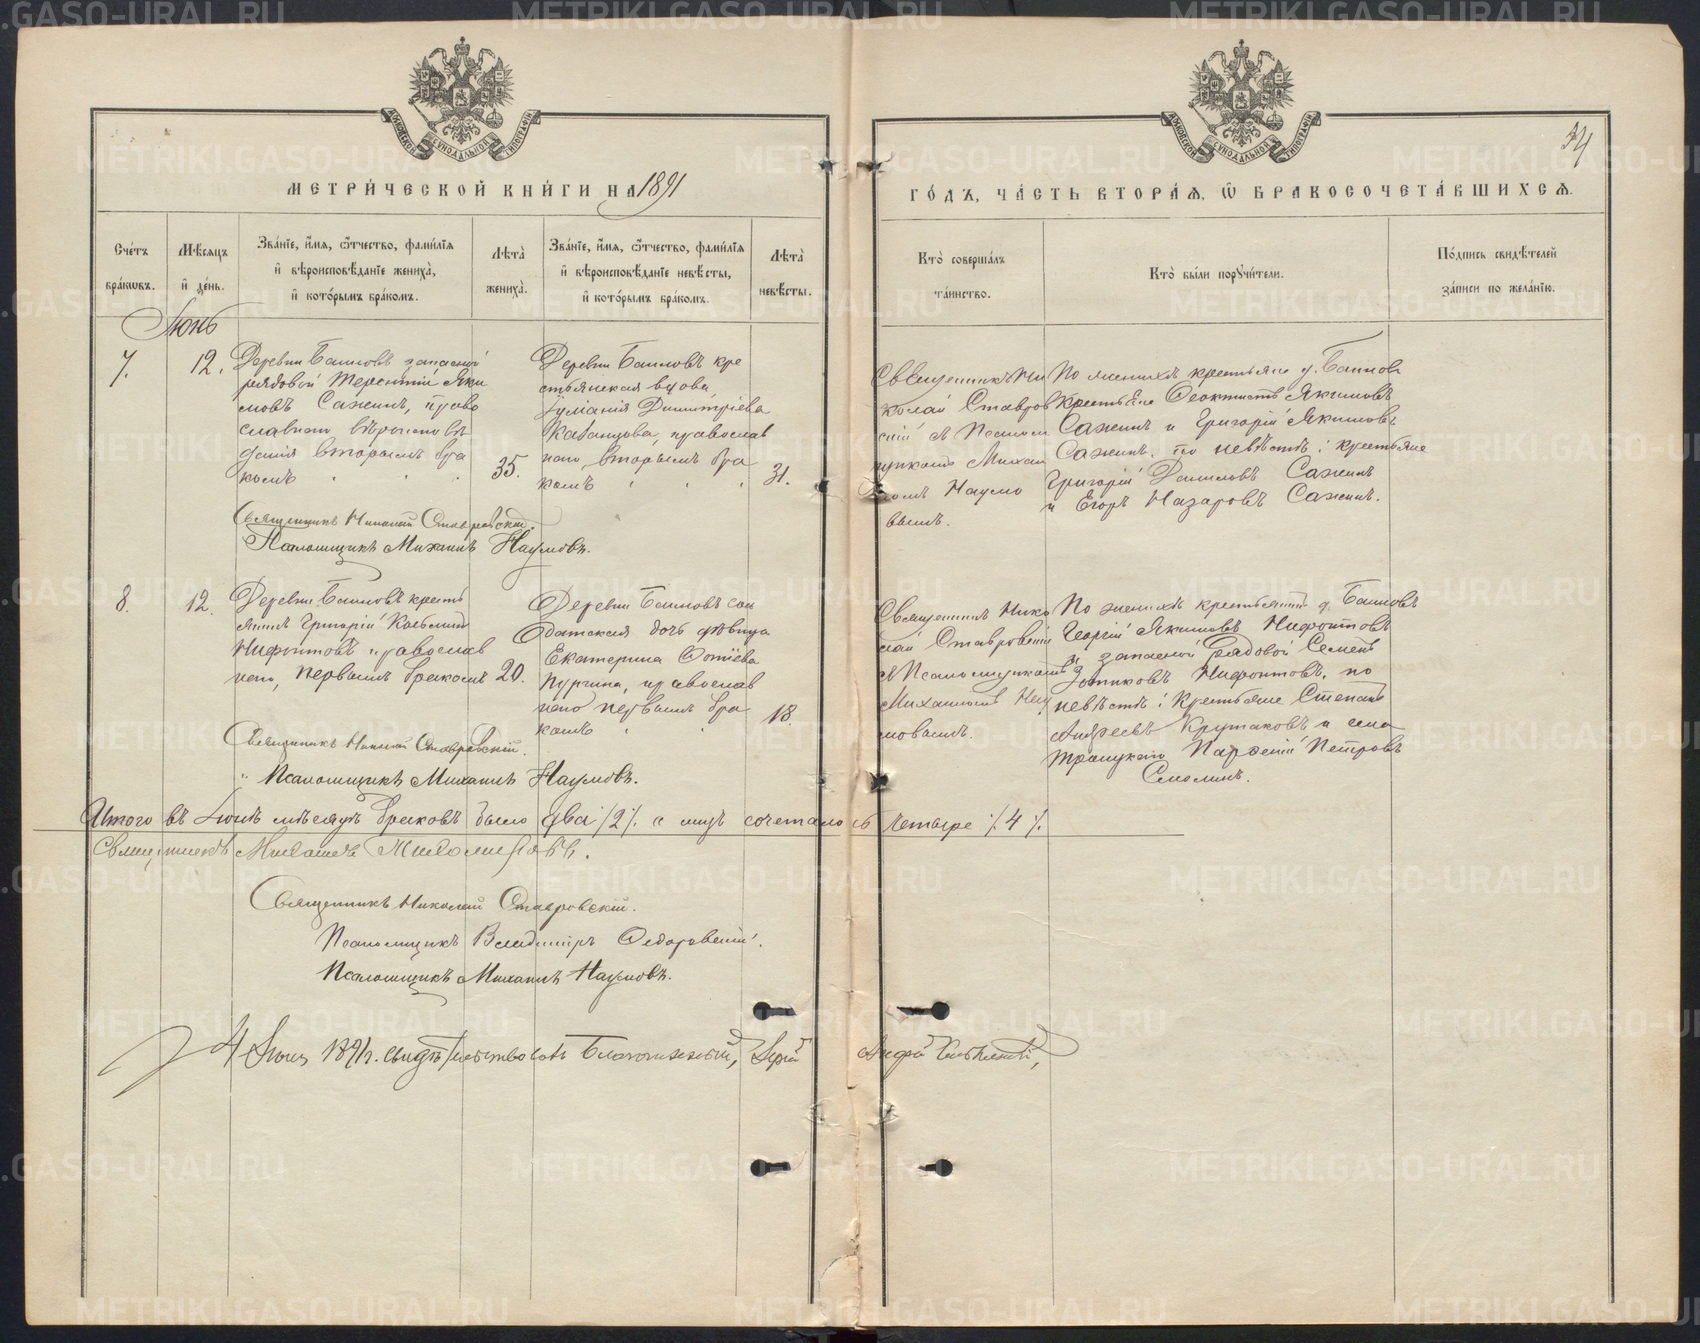 МЕТРИ́ЧЕСКОЙ КНИ́ГИ НА 1891
ГО́ДЪ, ЧА́СТЬ ВТОРА́Я, Ѿ БРАКОСОЧЕТА́ВШИХСЯ.
34
Сче́тъ бра́кωвъ.
Мѣ́сяцъ и҆ де́нь.
Зва́нїе, и҆́мя, ѻ҆́тчество, фами́лїя и҆ вѣроисповѣ́данїе жениха̀, и҆ кото́рымъ бра́комъ.
Лѣта̀ жениха̀.
Зва́нїе, и҆́мя, ѻ҆́тчество, фами́лїя и҆ вѣроисповѣ́данїе невѣ́сты, и҆ кото́рымъ бра́комъ.
Лѣта̀ невѣ́сты.
Кто̀ соверша́лъ та́инство.
Кто̀ бы́ли порꙋчи́тели.
По́дпись свидѣ́телей за́писи по жела́нїю.
Іюнь
7.
12.
Деревни Баиновъ запасной
рядовой Терентий Яки
мовъ Сажинъ, право
славнаго вѣроисповѣ
данія вторымъ бра
комъ
35.
Деревни Баиновъ кре
стьянская вдова
Іуліанія Димитріева
Казанцова, православ
наго, вторымъ бра
комъ
31.
Священникъ Ни
колай Ставров
скій съ Псалом
щикомъ Михаи
ломъ Наумо
вымъ.
По женихѣ крестьяне д. Баинов
крестьяне Феоктистъ Якимовъ
Сажинъ и Григорій Якимовъ
Сажинъ. по невѣстѣ: крестьяне
Григорій Даниловъ Сажинъ
и Егоръ Назаровъ Сажинъ.
Священникъ Николай Ставровскій.
Псаломщикъ Михаилъ Наумовъ.
8.
12.
Деревни Баиновъ кресть
янинъ Григорій Козьминъ
Нифонтовъ православ
наго, первымъ бракомъ
20.
Деревни Баиновъ сол
датская дочь дѣвица
Екатерина Фотіева
Пургина, православ
наго первымъ бра
комъ
18.
Священникъ Нико
лай Ставровскій
съ Псаломщикомъ
Михаиломъ Нау
мовымъ.
По женихѣ крестьянинъ д. Баиновъ
Георгій Якимовъ Нифонтовъ
и запасной рядовой Семенъ
Зотиковъ Нифонтовъ, по
невѣстѣ: Крестьяне Степанъ
Андреевъ Крутаковъ и села
Троицкаго Парфеній Петровъ
Смолинъ.
Священникъ Николай Ставровскій.
Псаломщикъ Михаилъ Наумовъ.
Итого въ Іюнѣ мѣсяцѣ браковъ было два /2/. а лицъ сочеталось четыре /4/.
Священникъ Михаилъ
Священникъ Николай Ставровскій.
Псаломщикъ Владиміръ Федоровскій.
Псаломщикъ Михаилъ Наумовъ.
4 Іюля 1891 г. свидѣтельствовалъ Благочинный, Іерей Андрей
METRIKI.GASO-URAL.RU